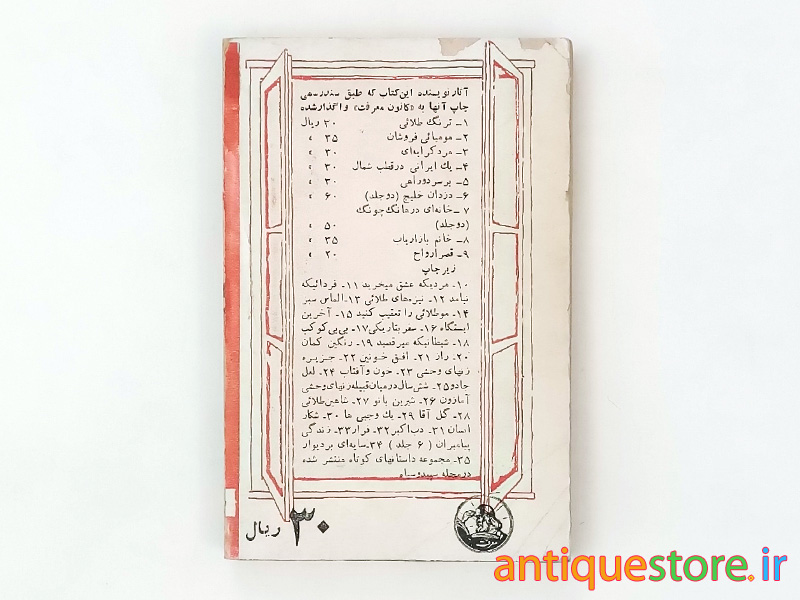 آثار نویسنده این کتاب که طبق سند رسمی
چاپ آنها به «کانون معرفت» واگذار شده
۱ـ ترنگ طلائی ۳۰ ریال
۲ـ مومیائی فروشان ۳۵ »
۳ـ مرد کرایه‌ای ۳۰ »
۴ـ یک ایرانی در قطب شمال ۳۰ »
۵ـ بر سر دوراهی ۳۰ »
۶ـ دزدان خلیج (دوجلد) ۶۰ »
۷ـ خانه‌ای در هانگ چونگ
(دوجلد) ۵۰ »
۸ـ خانم بازاریاب ۳۵ »
۹ـ قصر ارواح ۲۰ »
زیر چاپ
۱۰ـ مردیکه عشق میخرید ۱۱ـ فردائیکه
نیامد ۱۲ـ نیزه‌های طلائی ۱۳ـ الماس سبز
۱۴ـ مو طلائی را تعقیب کنید ۱۵ـ آخرین
ایستگاه ۱۶ـ سفر بتاریکی ۱۷ـ بی‌بی کوکب
۱۸ـ شیطانیکه میرقصید ۱۹ـ رنگین کمان
۲۰ـ راز ۲۱ـ افق خونین ۲۲ـ جزیره
زنهای وحشی ۲۳ـ خون و آفتاب ۲۴ـ لعل
جادو ۲۵ـ شش سال در میان قبیله زنهای وحشی
آمازون ۲۶ـ شیرین بانو ۲۷ـ شاهین طلائی
۲۸ـ گل آقا ۲۹ـ یک وجبی ها ۳۰ـ شکار
انسان ۳۱ـ دب اکبر ۳۲ـ فرار ۳۳ـ زندگی
پیامبران ( ۶ جلد ) ۳۴ـ سایه‌ای بر دیوار
۳۵ـ مجموعه داستانهای کوتاه منتشر شده
در مجله سپید و سیاه
۳۰ ریال
معرفت
antiquestore.ir